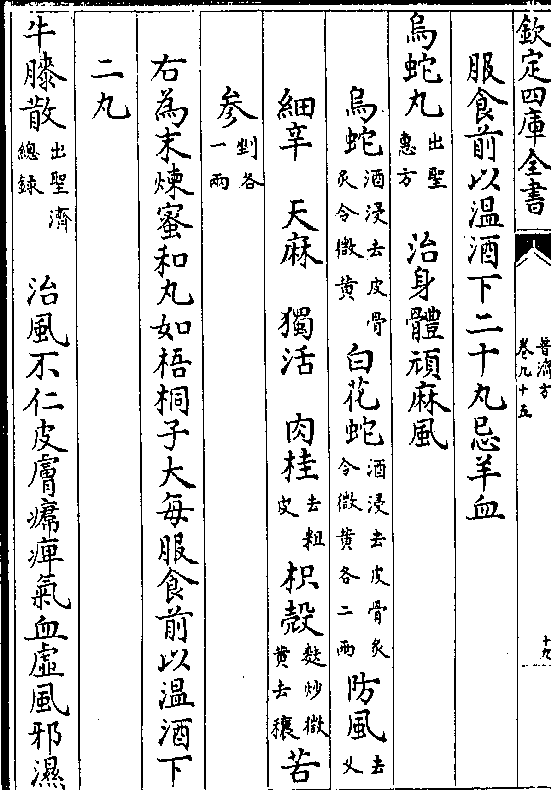 欽定四庫全書
普濟方
卷九十五
十九
服食前以温酒下二十丸忌羊血
烏蛇丸出聖惠方 治身體頑麻風
烏蛇酒浸去皮骨炙令微黄 白花蛇酒浸去皮骨炙令微黄各二兩 防風去乂
細辛 天麻 獨活 肉桂去粗皮 枳殻麩炒微黄去穰 苦
參剉各一兩
右為末煉蜜和丸如梧桐子大每服食前以温酒下
二丸
牛膝散出聖濟總録 治風不仁皮膚𤸷痺氣血虛風邪濕